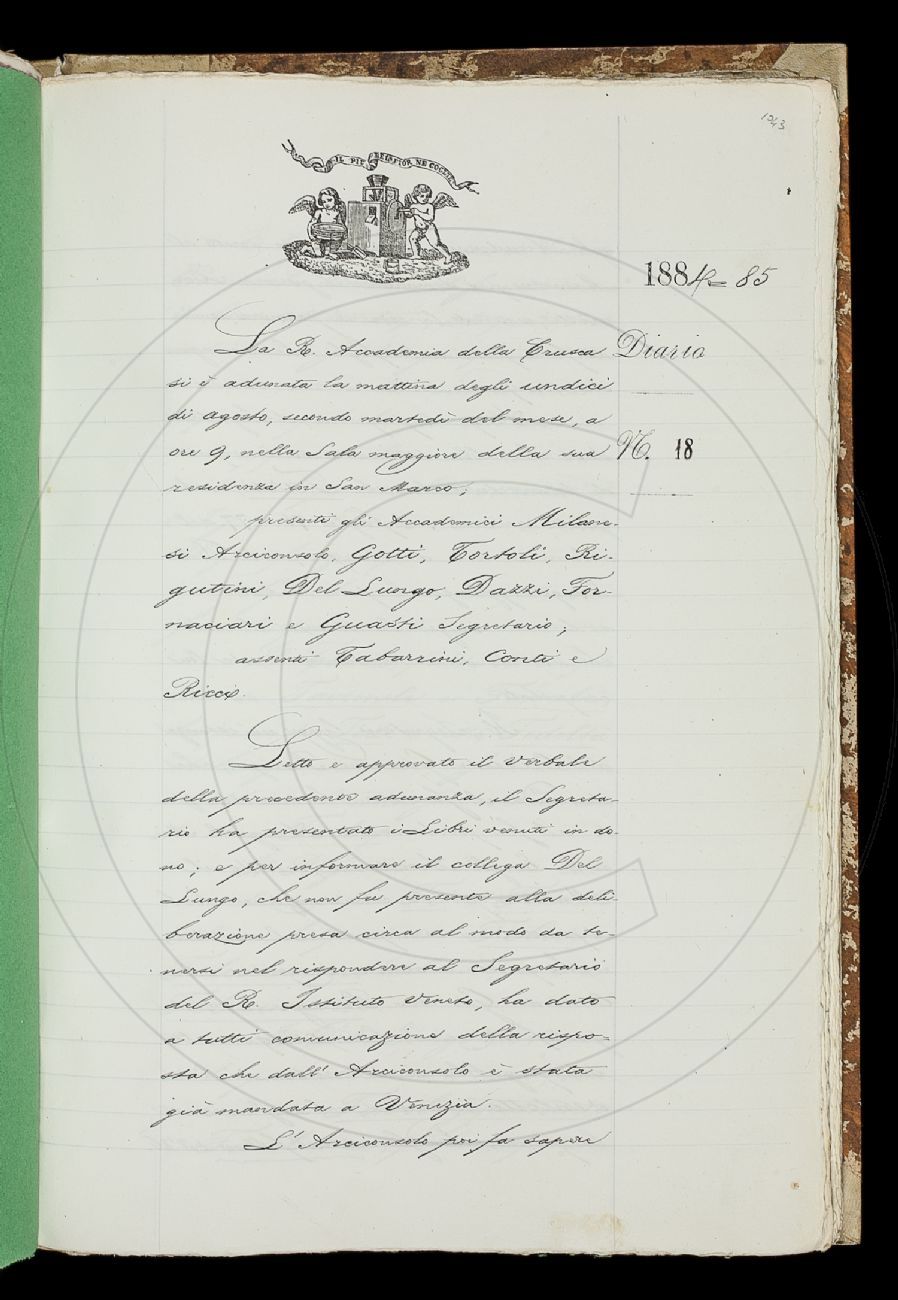 1243
IL PIÙ BEL FIOR NE COGLIE
1884=85
La R. Accademia della Crusca
Diario
si è adunata la mattina degli undici
di agosto, secondo martedì del mese, a
ore 9, nella Sala maggiore della sua
N. 18
residenza in San Marco;
presenti gli Accademici Milane-
si Arciconsolo, Gotti, Tortoli, Ri-
gutini, Del Lungo, Dazzi, For-
naciari e Guasti Segretario;
assenti Tabarrini, Conti e
Ricci.
Letto e approvato il verbale
della precedente adunanza, il Segreta-
rio ha presentato i Libri venuti in do-
no; e per informare il collega Del
Lungo, che non fu presente alla deli-
berazione presa circa al modo da te-
nersi nel rispondere al Segretario
del R. Istituto Veneto, ha dato
a tutti comunicazione della rispo-
sta che dall' Arciconsolo è stata
già mandata a Venezia.
L' Arciconsolo poi fa sapere